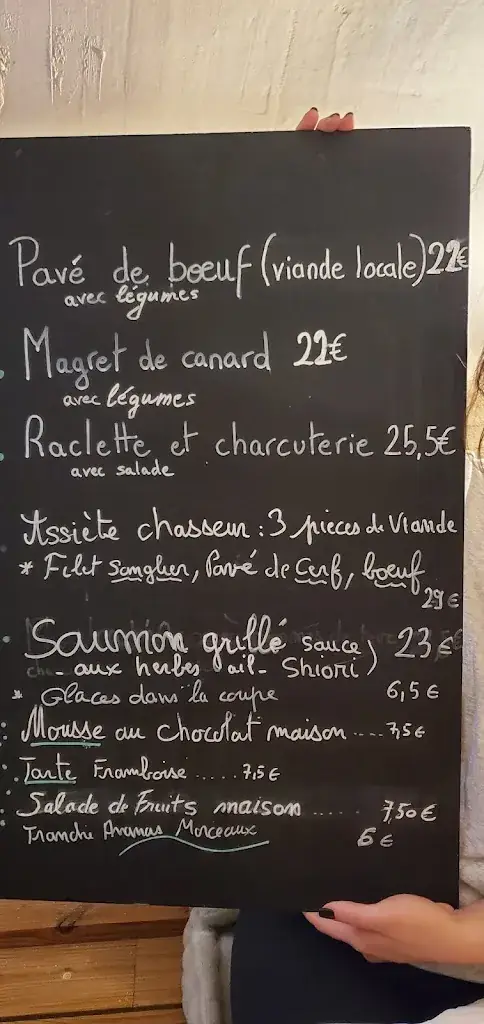 Pavé de boeuf (viande locale) 22€
avec légumes
Magret de canard 22€
avec légumes
Raclette et charcuterie 25,5€
avec salade
Assiète chasseur : 3 pièces de Viande
* Filet Sanglier, Pavé de Cerf, boeuf
29€
Saumon grillé sauce 23€
- aux herbes ail - Shiori)
* Glaces dans la coupe 6,5€
Mousse au chocolat maison ---- 7,5€
Tarte Framboise ..... 7,5€
Salade de Fruits maison ..... 7,50€
Tranche Ananas Morceaux 6€